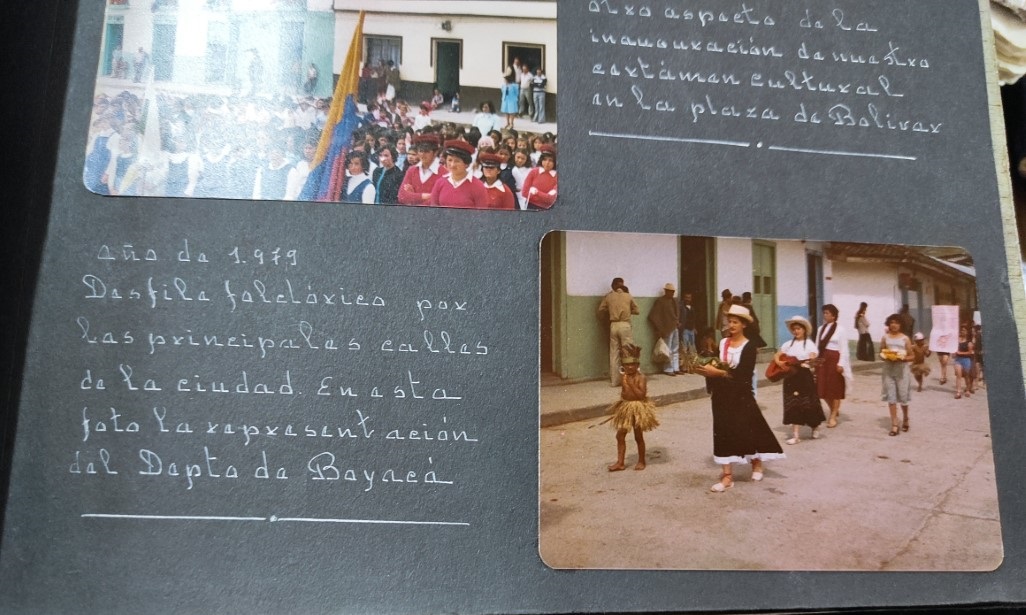 otro aspecto de la
inauguración de nuestro
certámen cultural
en la plaza de Bolivar
año de 1.979
Desfile folclórico por
las principales calles
de la ciudad. En esta
foto la representación
del Depto de Boyacá